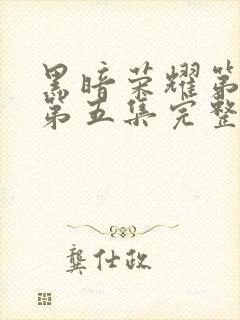 黑暗荣耀第
第五集完整
龚仕政